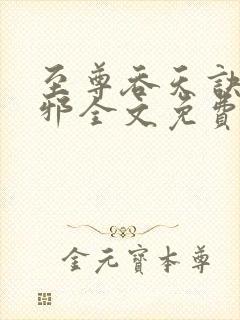 至尊吞天訣
邪全文免費
金元寶本尊